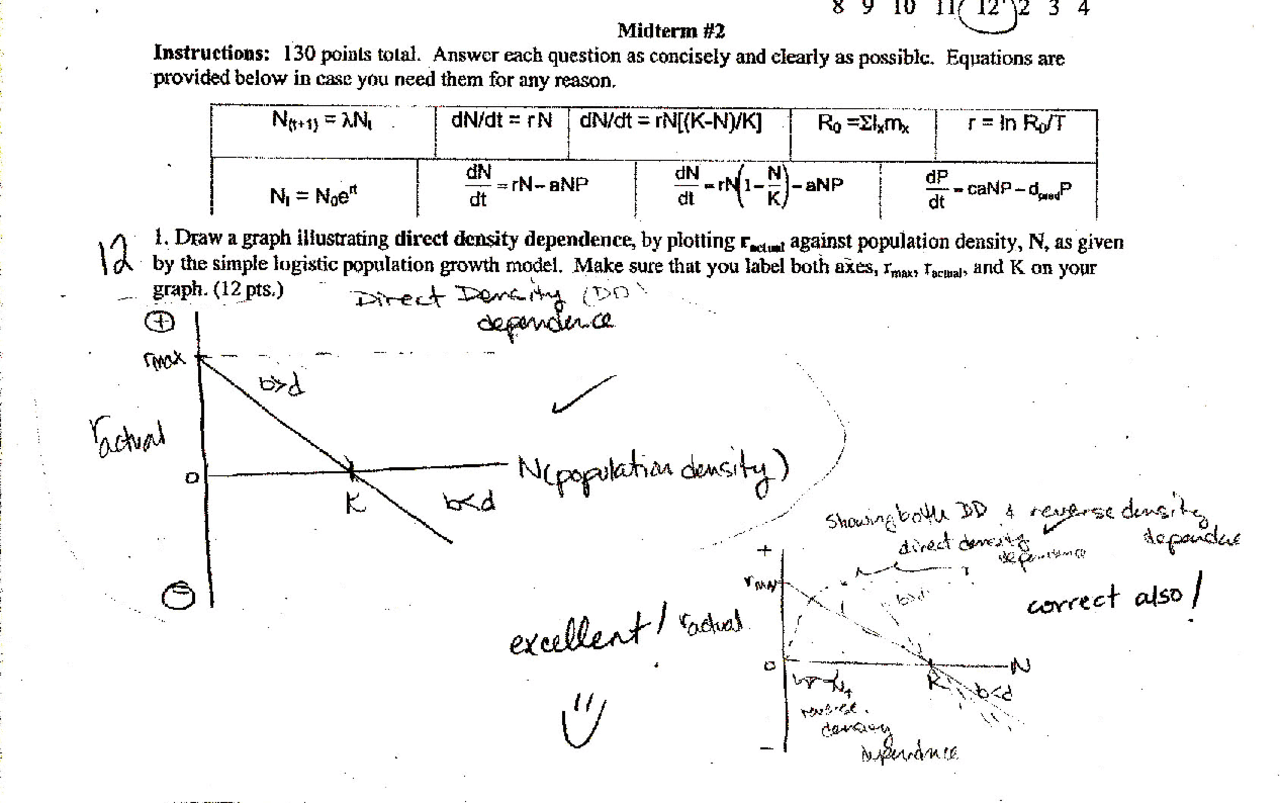 8 9 10 11 12 2 3 4
Midterm #2
Instructions: 130 points total. Answer each question as concisely and clearly as possible. Equations are
provided below in case you need them for any reason.
N(t+1) = λNt dN/dt = rN dN/dt = rN[(K-N)/K] R0 =Σlxmx r = ln R0/T
Nt = N0e^rt dN/dt = rN – aNP dN/dt = rN(1 – N/K) – aNP dP/dt = caNP – dpredP
12
1. Draw a graph illustrating direct density dependence, by plotting ractual against population density, N, as given
by the simple logistic population growth model. Make sure that you label both axes, rmax, ractual, and K on your
graph. (12 pts.)
Direct Density (DD)
dependence
+
rmax
b>d
ractual
0
N(population density)
K
b<d
–
Showing both DD & reverse density
dependence
direct density
dependence
+
rmax
b>d
correct also!
excellent!
ractual
0
N
K
b<d
reverse
density
dependence
–